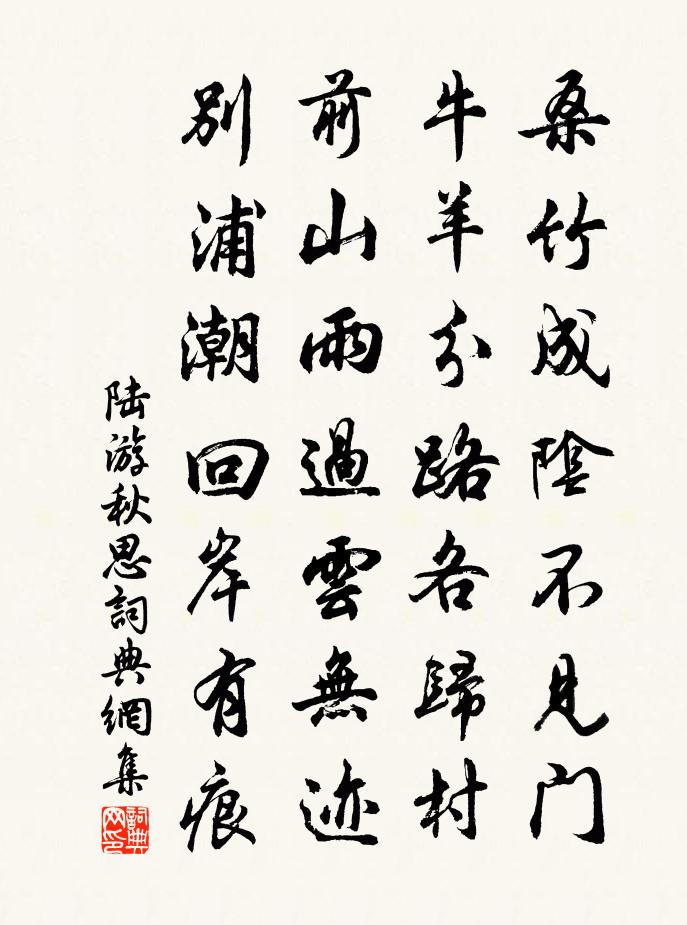 桑竹成陰不見門
牛羊分路各歸村
前山雨過雲無迹
別浦潮回岸有痕
陆游秋思詞典網集
詞典網印